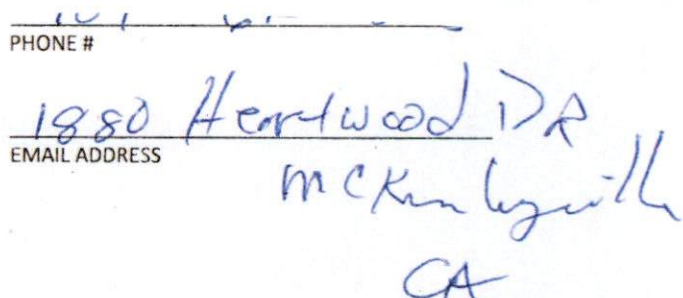 PHONE #
1880 Heartwood DR
EMAIL ADDRESS
McKinleyville
CA